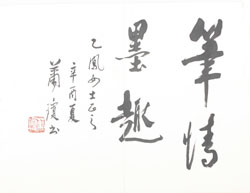 筆情
墨趣
乙鳳女士正之
辛酉夏
蕭瓊書